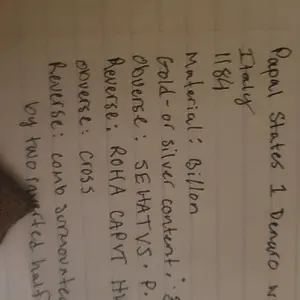 Papal States 1 Denaro
Italy
1184
Material: Billon
Gold- or silver content:
Obverse: SEHATVS. P.
Reverse: ROHA CAPVT
obverse: cross
Reverse: comb surmounted
by two inverted half